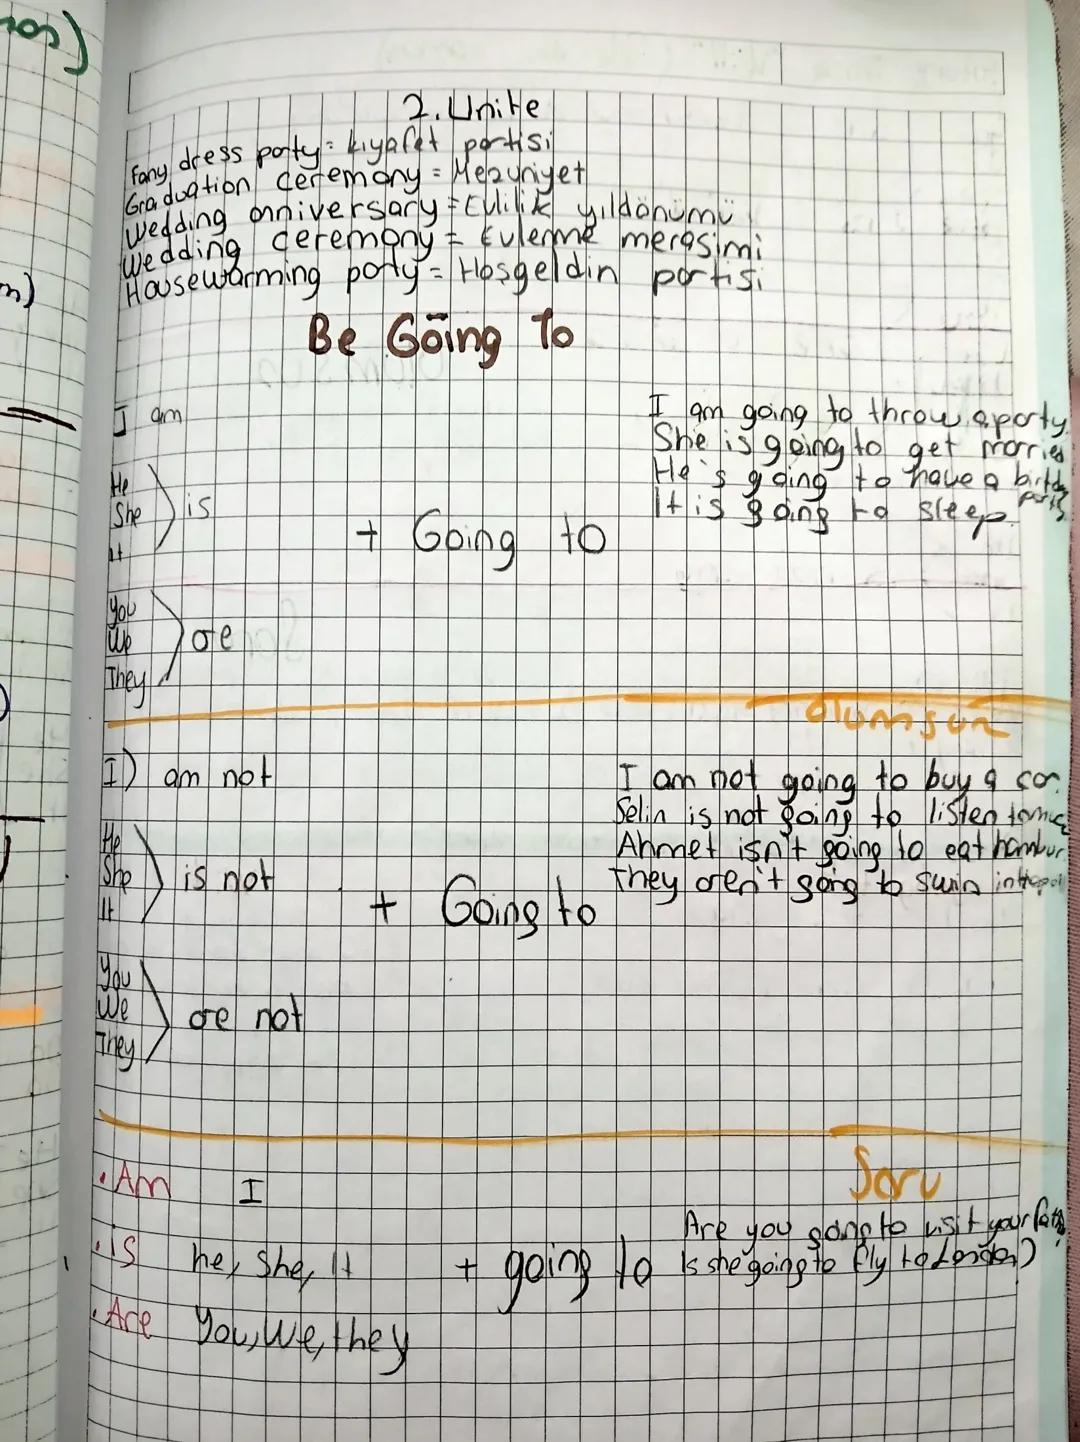 2. Unite
Fany dress party = kıyafet partisi
Graduation ceremony = Mezuniyet
Wedding anniversary = Evlilik yıldönümü
Wedding ceremony = Evlenme merasimi
Housewarming party = Hoşgeldin partisi
Be Going To
I am
He
She
It
is
+ Going to
You
We
They
are
I am going to throw a party.
She is going to get married
He's going to have a birthday
party
It is going to sleep.
olumsuz
I) am not
He
She
It
is not
+ Going to
You
We
They
are not
I am not going to buy a car.
Selin is not going to listen to
Ahmet isn't going to eat hambur.
They aren't going to swim in
Soru
• Am I
• is he, she, It
• Are You, We, they
+ going to
Are you going to visit your
Is she going to fly to London?